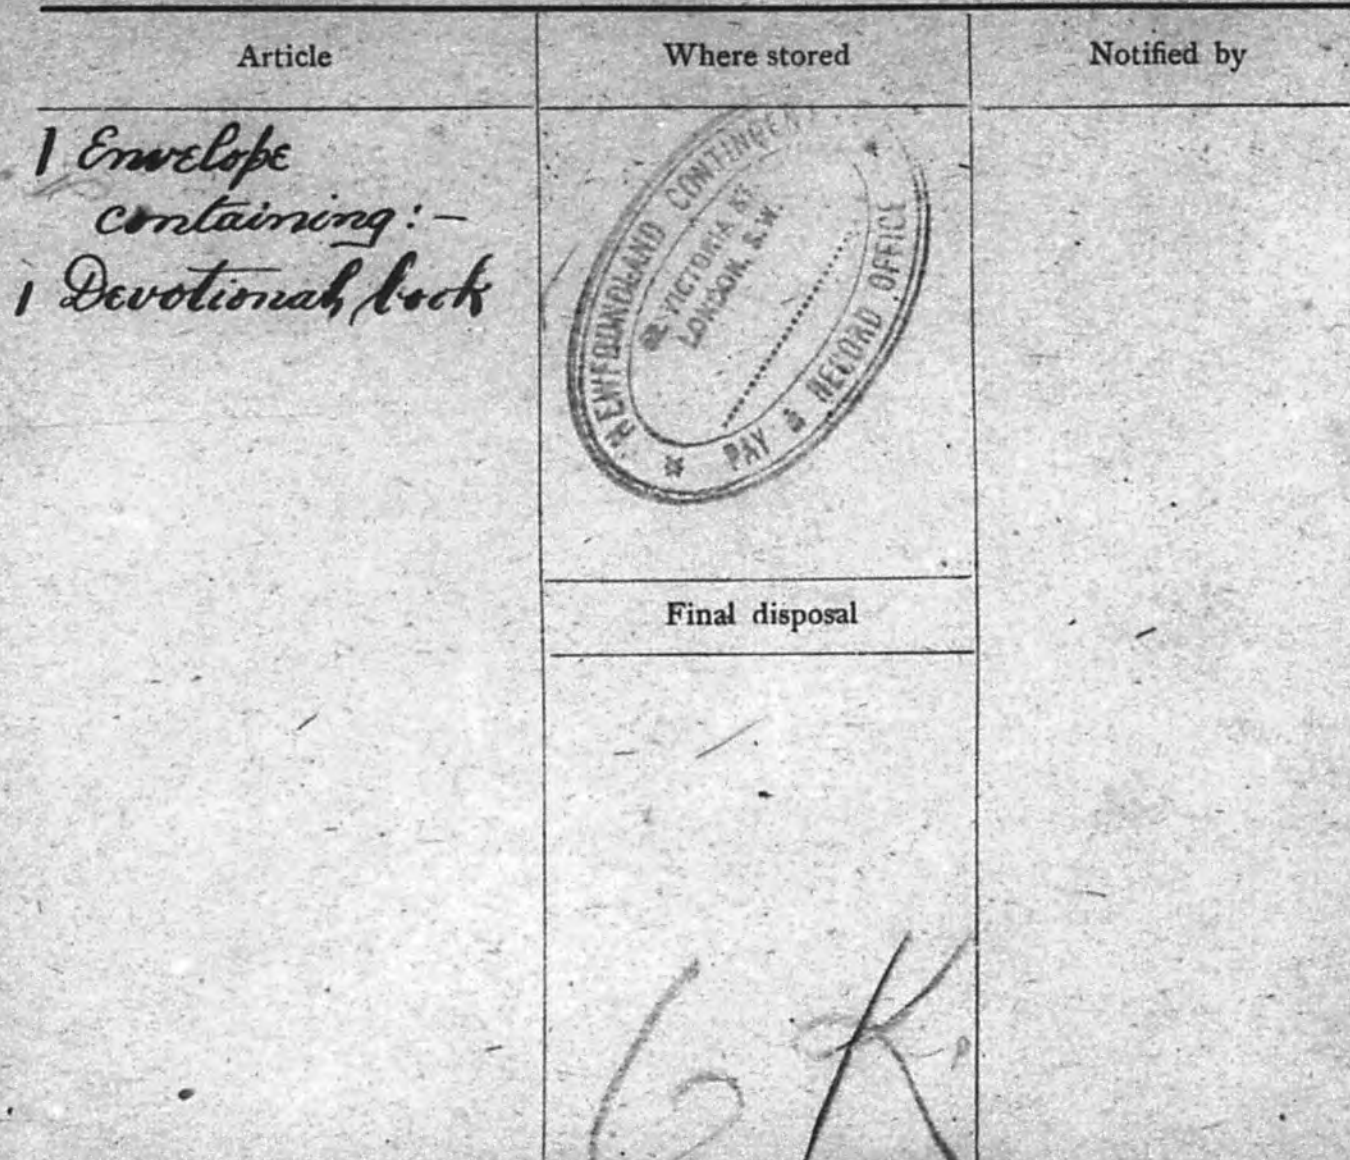 Article
Where stored
Notified by
1 Envelope
containing:-
1 Devotional book
NEWFOUNDLAND CONTINGENT
VICTORIA ST.
LONDON, S.W.
PAY & RECORD OFFICE
Final disposal